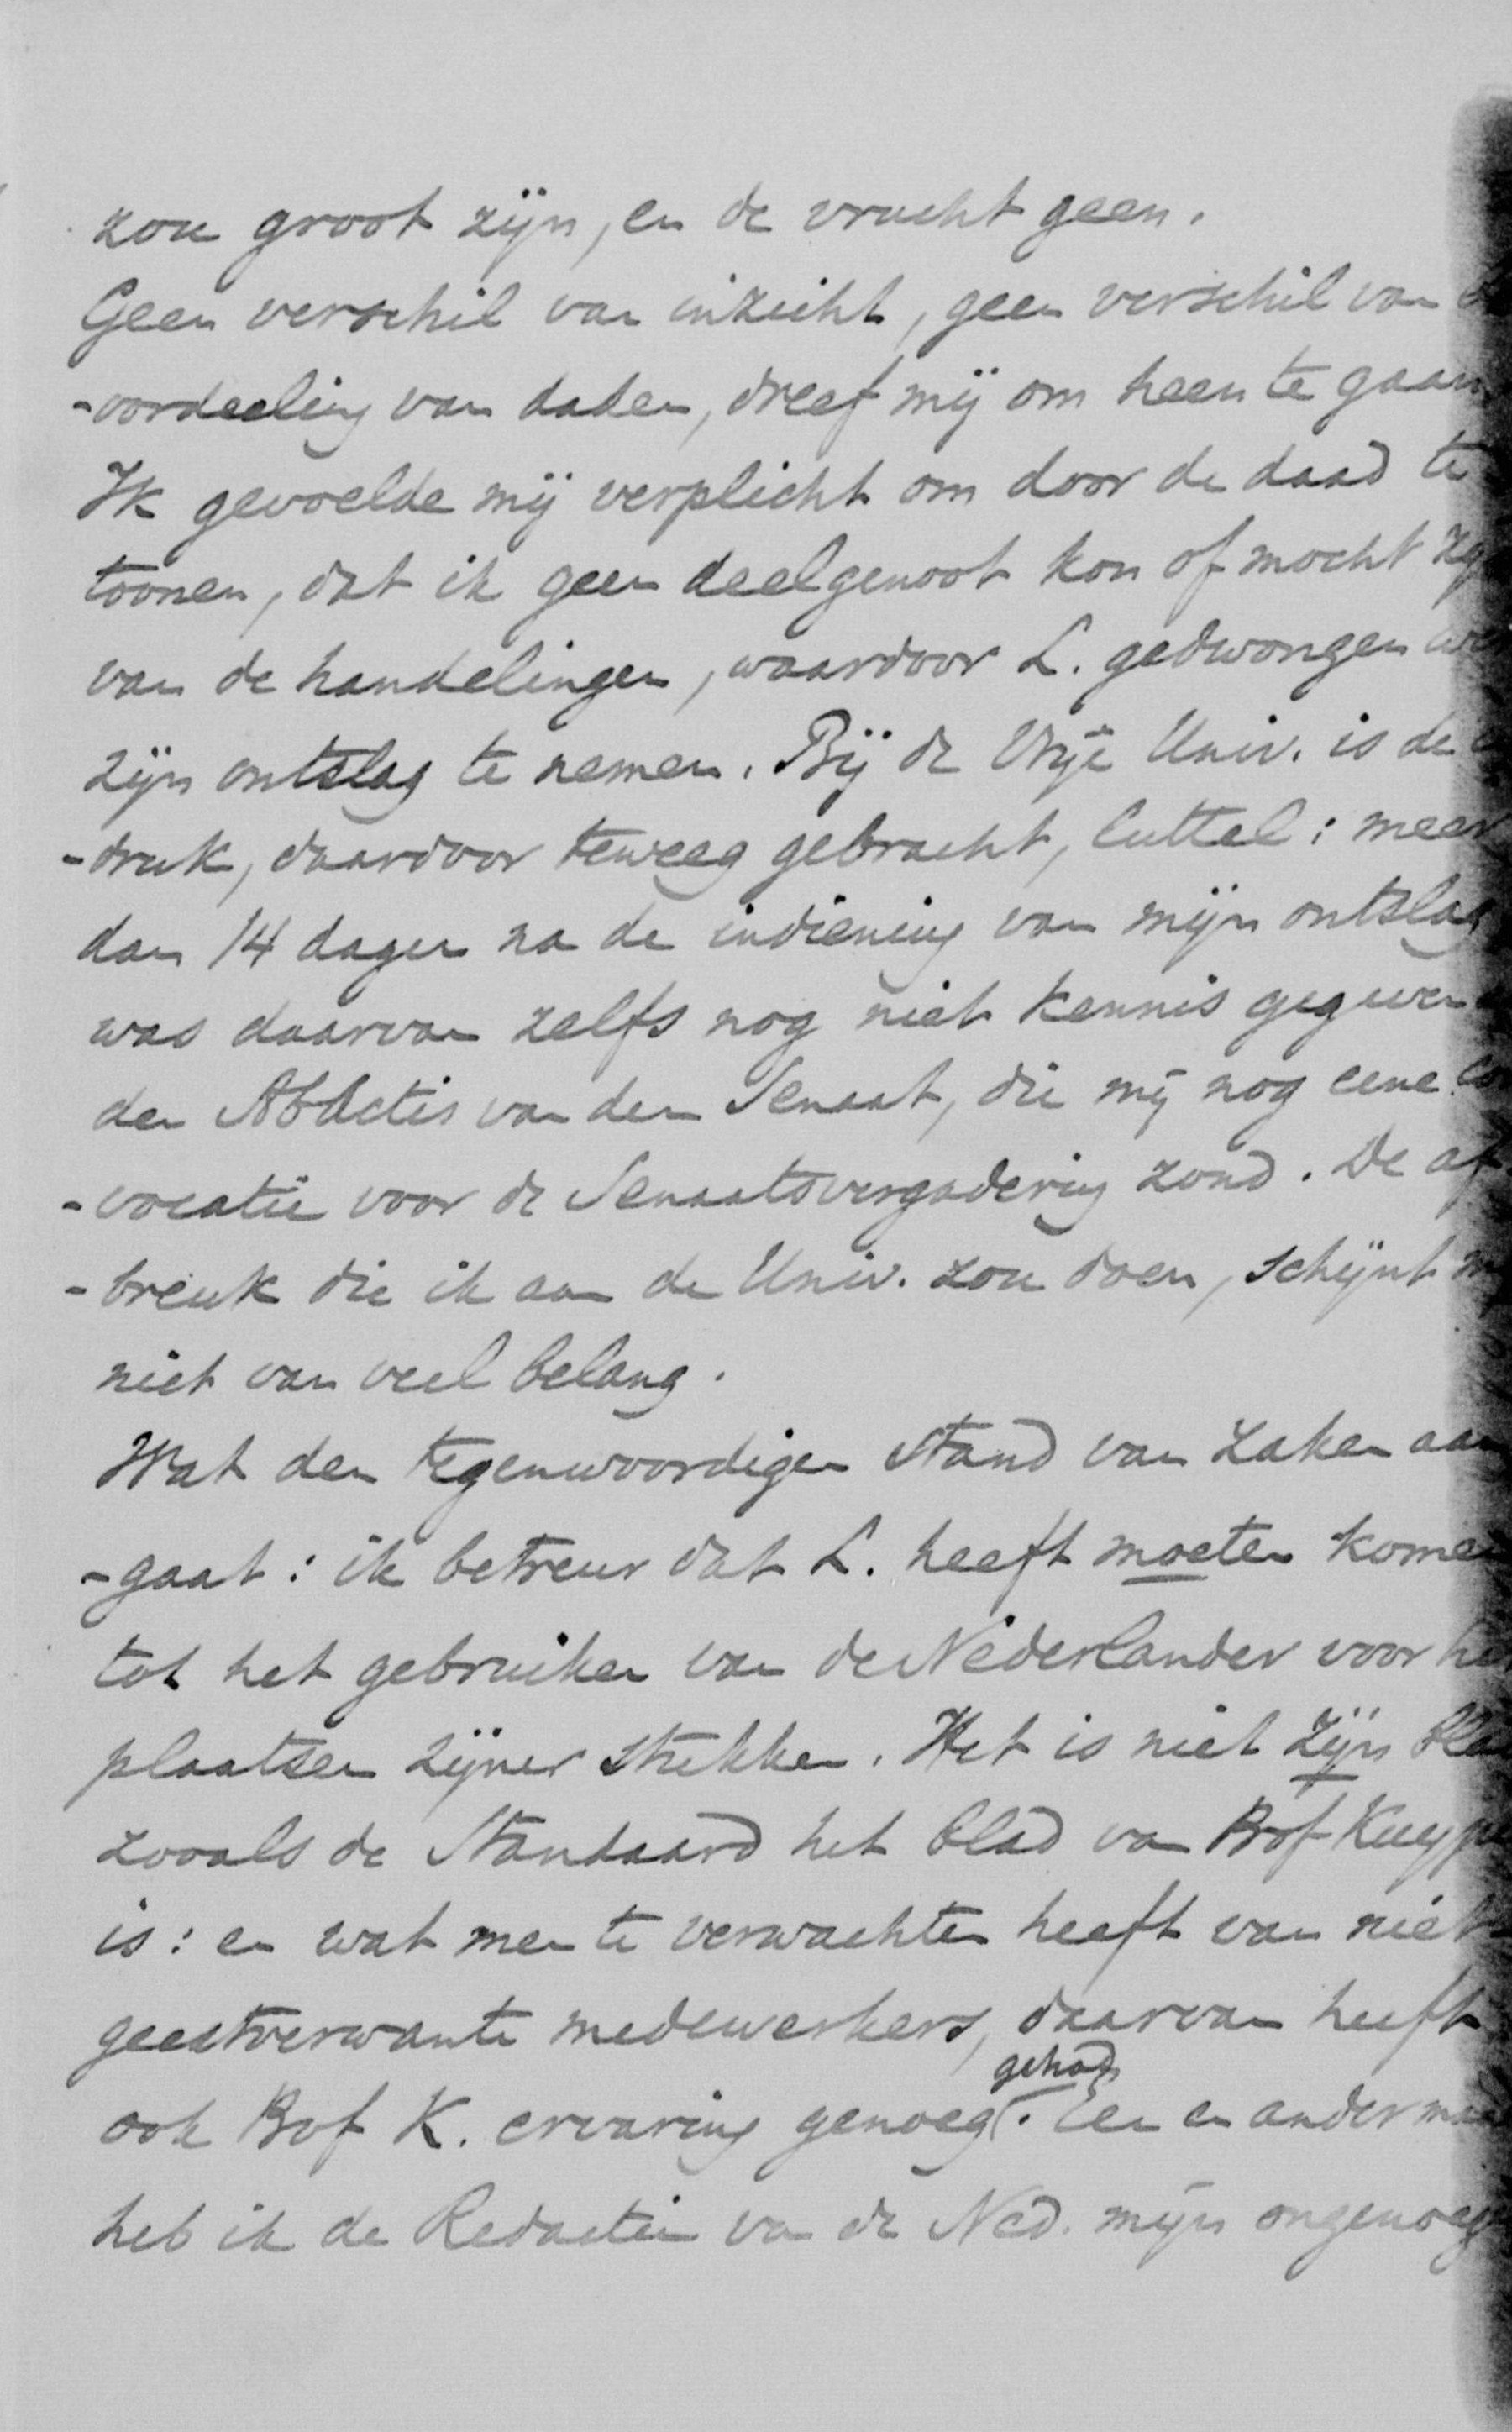 zou groot zijn, en de vrucht geen.
Geen verschil van inzicht, geen verschil van
-oordeeling van daden, dreef mij om heen te gaan
Ik gevoelde mij verplicht om door de daad te
toonen, dat ik geen deelgenoot kon of mocht
van de handelingen, waardoor L. gedwongen
zijn ontslag te nemen. Bij de Vrije Univ. is de
-druk, daardoor teweeg gebracht, luttel: meer
dan 14 dagen na de indiening van mijn ontslag
was daarvan zelfs nog niet kennis gegeven
den Ab Actis van den Senaat, die mij nog eene
-vocatie voor de Senaatsvergadering zond. De af
-breuk die ik aan de Univ. zou doen, schijnt
niet van veel belang.
Wat den tegenwoordigen stand van zaken aan
-gaat: ik betreur dat L. heeft moeten komen
tot het gebruiken van de Nederlander voor
plaatsen zijner stukken. Het is niet zijn
zooals de Standaard het blad van Prof Kuyp
is: en wat men te verwachten heeft van niet
geestverwante medewerkers, daarvan heeft
ook Prof K. ervaring genoeg gehad. Een en ander
heb ik de Redactie van de Ned. mijn ongenoeg